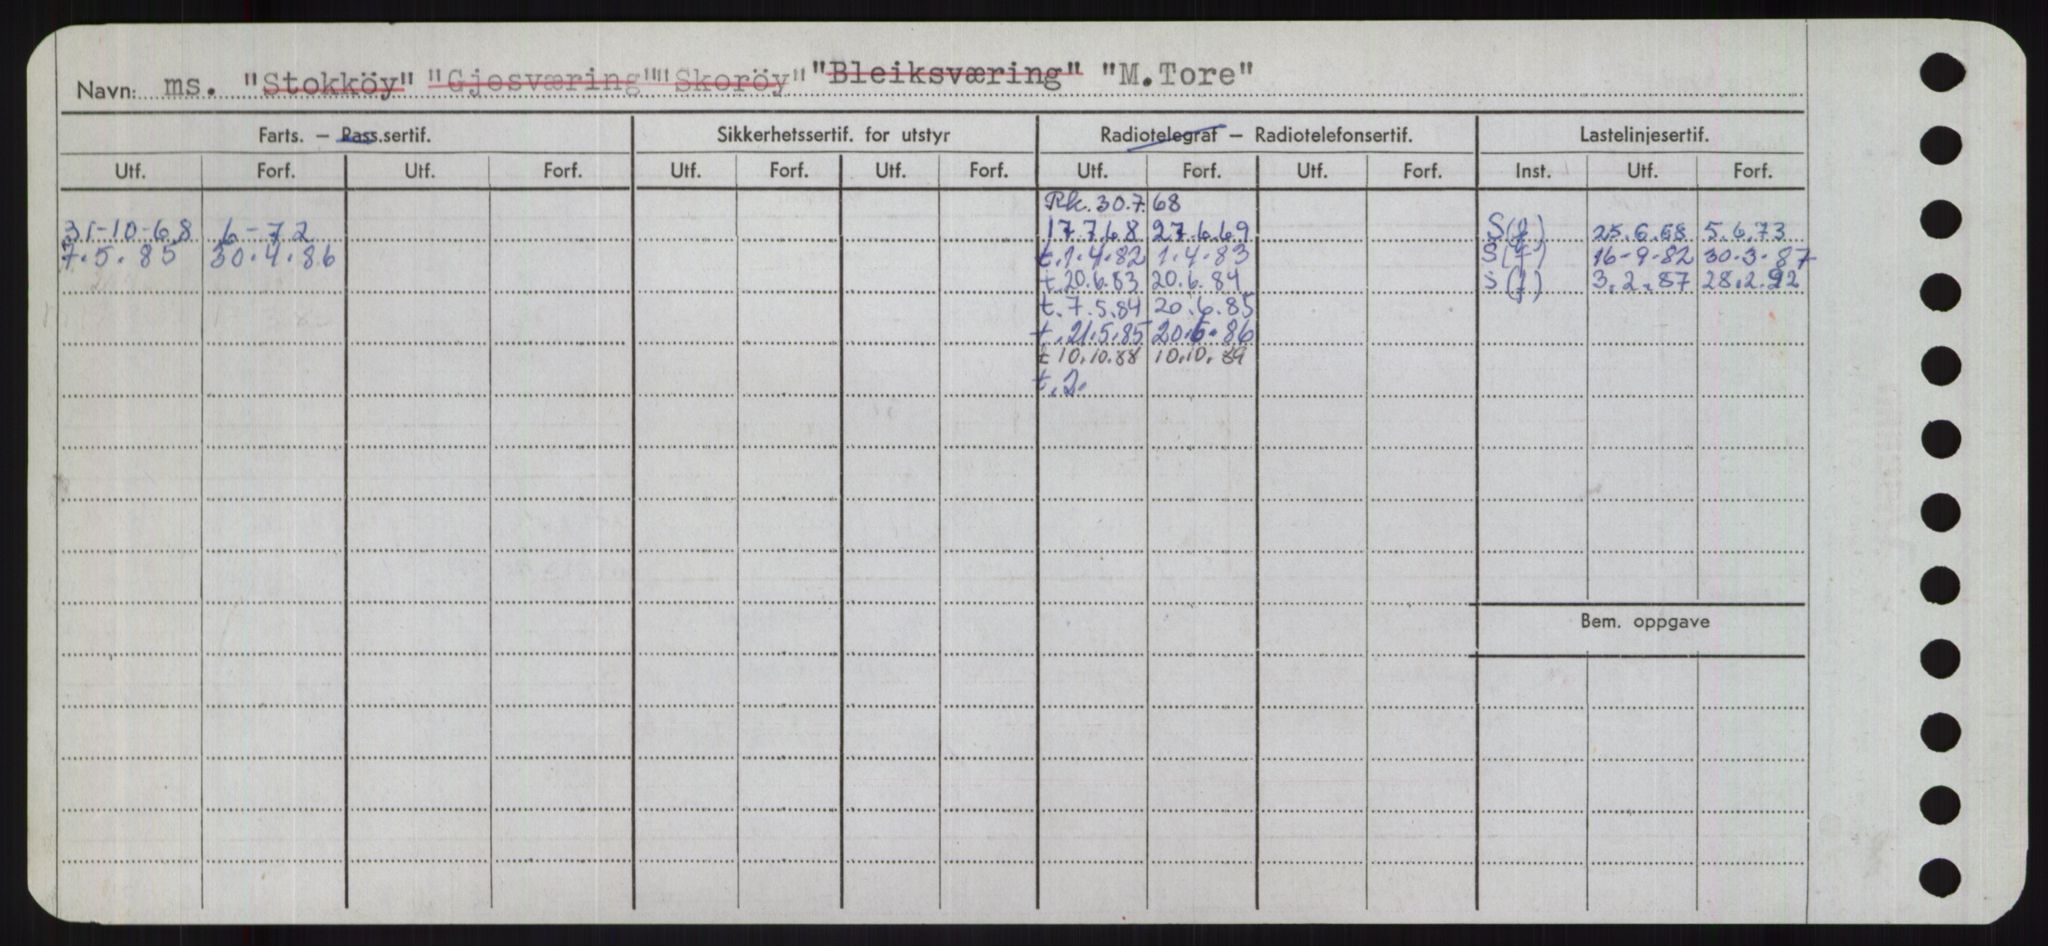 Navn: ms. "Stokköy" "Gjesværing" "Skoröy" "Bleiksværing" "M.Tore"
Farts. – Pass.sertif. Sikkerhetssertif. for utstyr Radiotelegraf – Radiotelefonsertif. Lastelinjesertif.
Utf. Forf. Utf. Forf. Utf. Forf. Utf. Forf. Utf. Forf. Utf. Forf. Inst. Utf. Forf.
Rk. 30.7.68
31-10-68 6-72 17.7.68 27.6.69 25.6.68 5.6.73
7.5.85 30.4.86 t.1.4.82 1.4.83 16-9-82 30-3-87
t.20.6.83 20.6.84 3.2.87 28.2.92
t.7.5.84 20.6.85
t.21.5.85 20.6.86
t 10.10.88 10.10.89
t.2.
Bem. oppgave